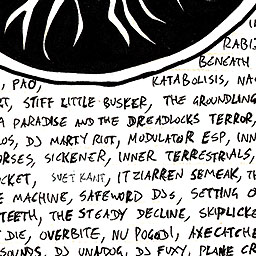 RABI
BENEATH
, PAO, KATABOLISIS, NA
RT, STIFF LITTLE BUSKER, THE GROUNDLING
A PARADISE AND THE DREADLOCKS TERROR,
OS, DJ MARTY RIOT, MODULATOR ESP, INN
ORSES, SICKENER, INNER TERRESTRIALS,
OCKET, SVET KANT, ITZIARREN SEMEAK, TH
E MACHINE, SAFEWORD DJs, SETTING O
TEETH, THE STEADY DECLINE, SKIPLICKE
DIE, OVERBITE, NU POGODI, AXECATCHE
SOUNDS, DJ UNADOG, DJ FUXY, PLANE CR